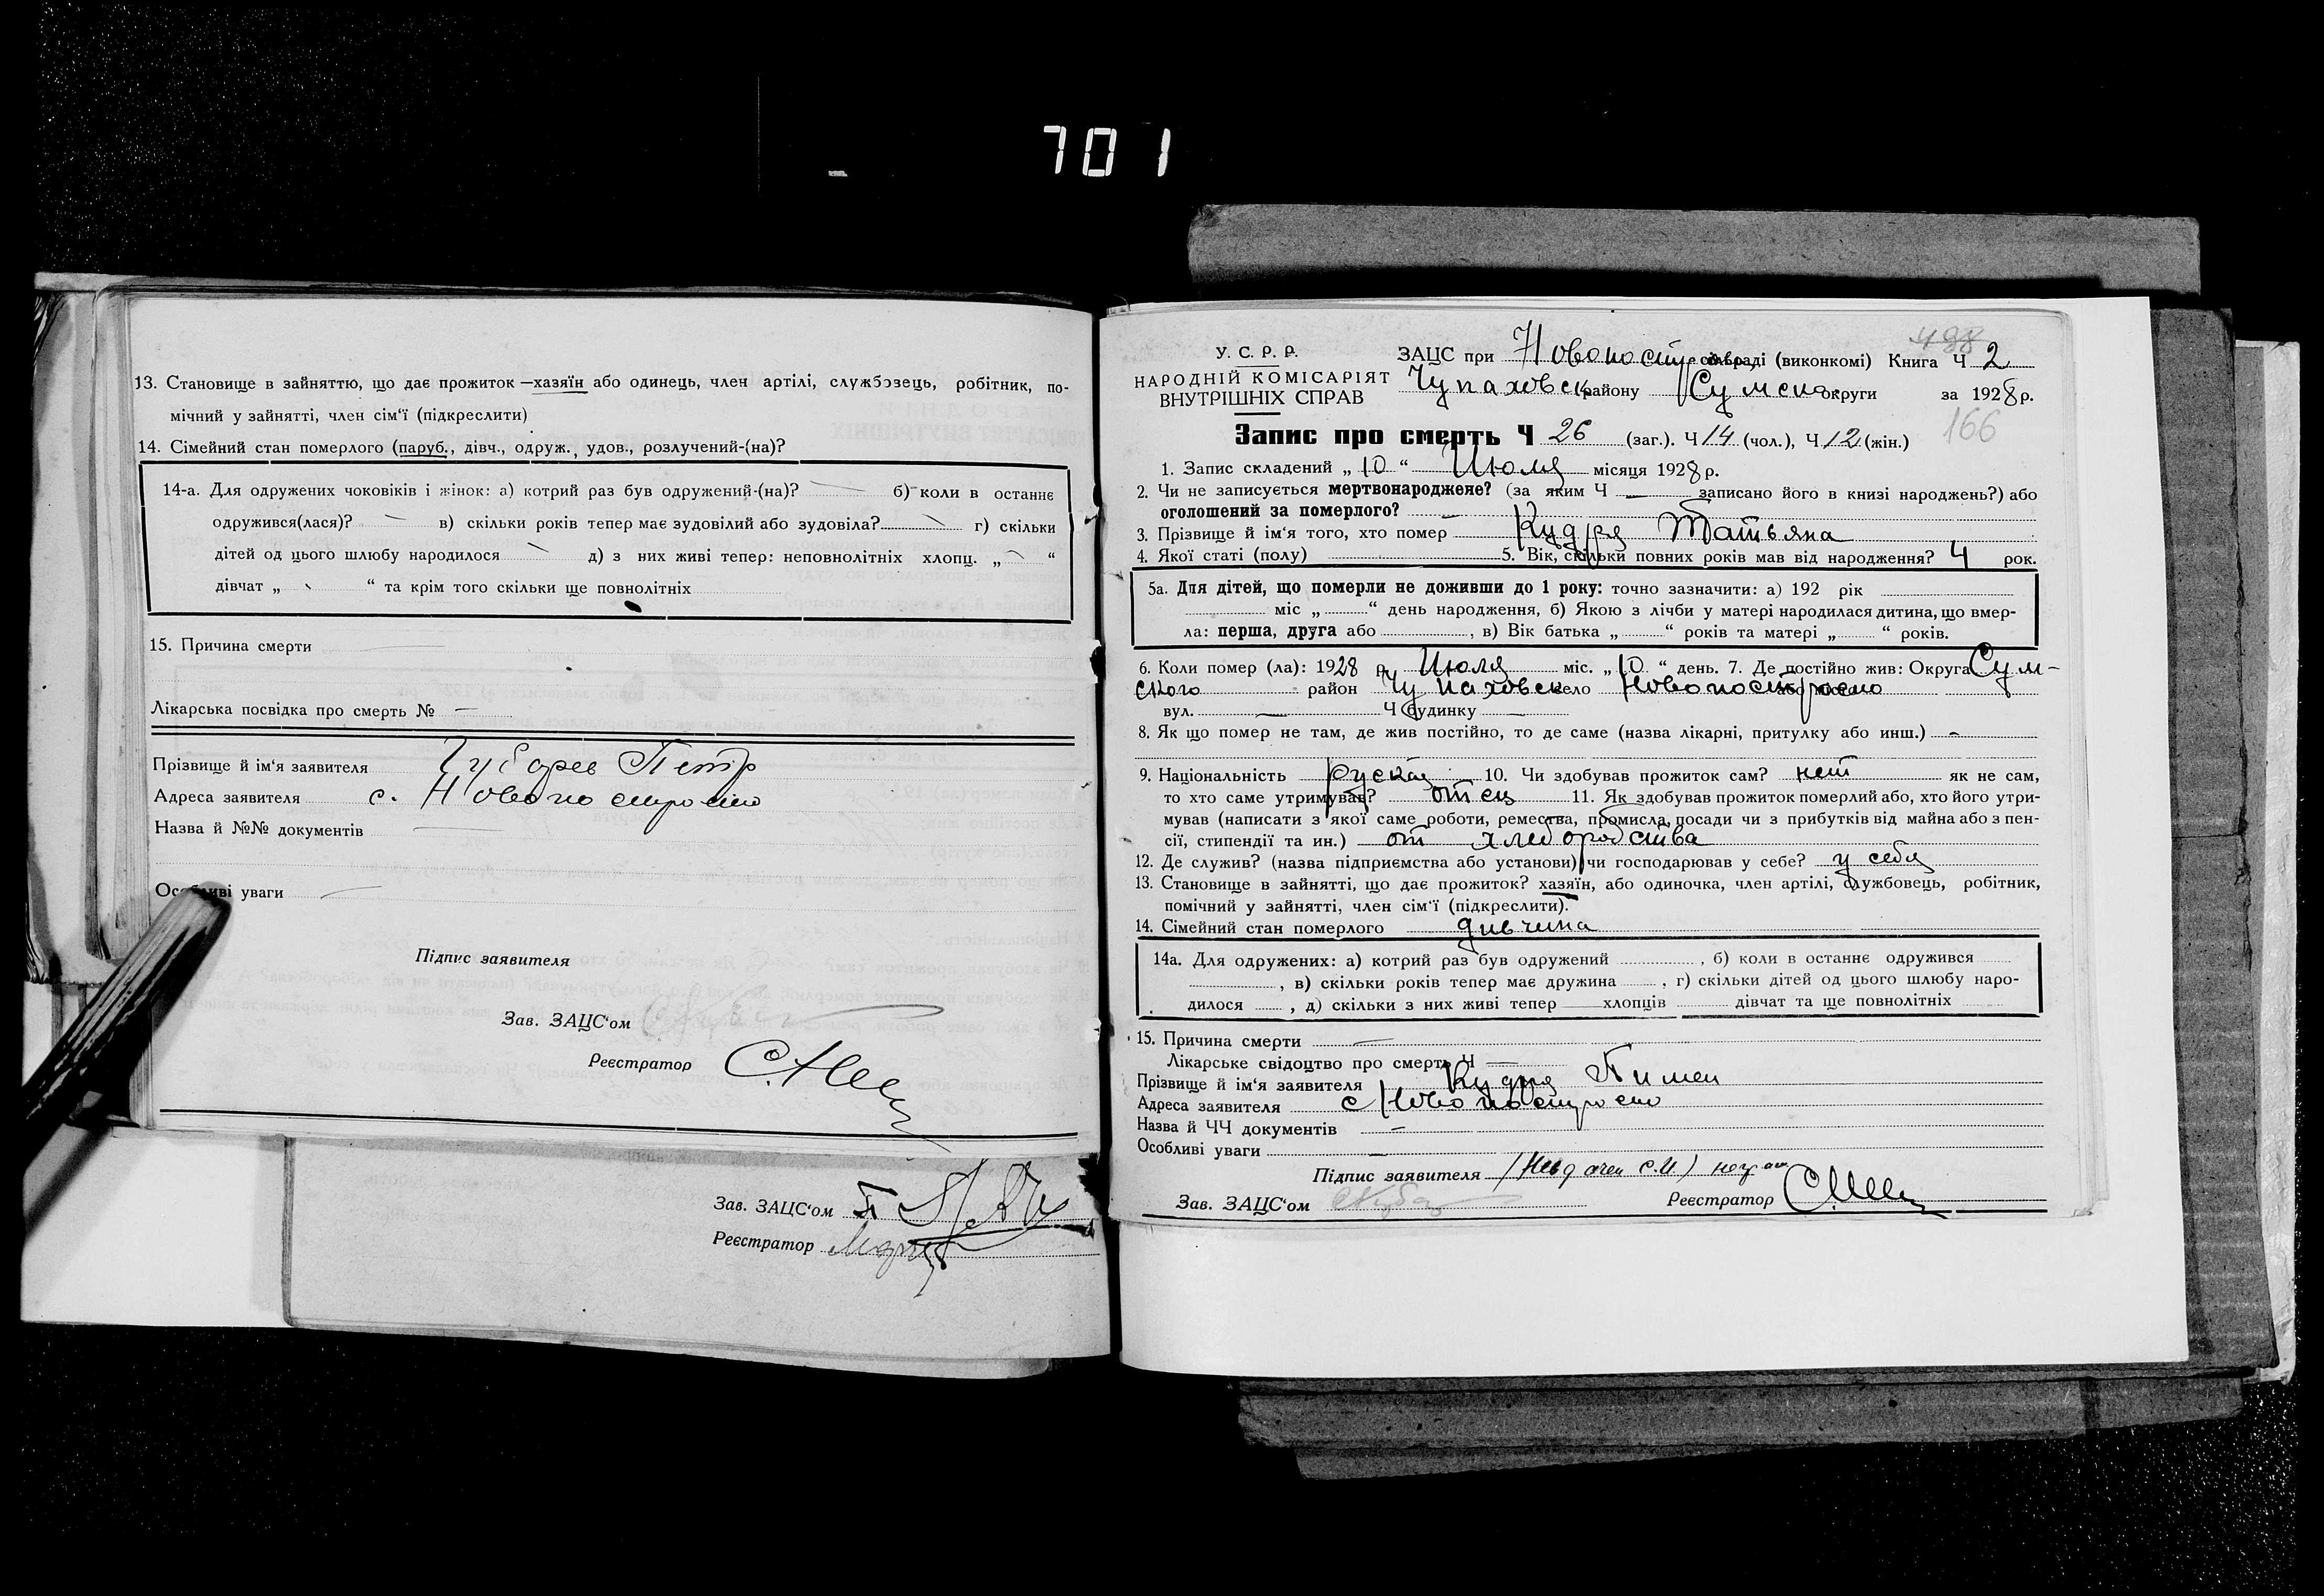 701
13. Становище в зайняттю, що дає прожиток—хазяїн або одинець, член артілі, службовець, робітник, по-
мічний у зайнятті, член сім'ї (підкреслити)
14. Сімейний стан померлого (паруб., дівч., одруж., удов., розлучений-(на)?
14-а. Для одружених чоковіків і жінок: а) котрий раз був одружений-(на)? — б) коли в останнє
одружився(лася)? — в) скільки років тепер має зудовілий або зудовіла? — г) скільки
дітей од цього шлюбу народилося — д) з них живі тепер: неповнолітніх хлопц. „ — “
дівчат „ — “ та крім того скільки ще повнолітніх
15. Причина смерти —
Лікарська посвідка про смерть № —
Прізвище й ім'я заявителя Губарев Петр
Адреса заявителя с. Новопостроено
Назва й №№ документів —
Особливі уваги —
Підпис заявителя
Зав. ЗАЦС'ом
Реєстратор
Зав. ЗАЦС'ом
Реєстратор
498
У. С. Р. Р.
НАРОДНІЙ КОМІСАРІЯТ
ВНУТРІШНІХ СПРАВ
ЗАЦС при Новопостр сільраді (виконкомі) Книга Ч 2
Чупаховск району Сумск округи за 1928 р.
Запис про смерть Ч 26 (заг.). Ч 14 (чол.), Ч 12 (жін.) 166
1. Запис складений „ 10 “ Июля місяця 1928 р.
2. Чи не записується мертвонароджене? (за яким Ч — записано його в книзі народжень?) або
оголошений за померлого? —
3. Прізвище й ім'я того, хто помер Кудря Татьяна
4. Якої статі (полу) 5. Вік, скільки повних років мав від народження? 4 рок.
5а. Для дітей, що померли не доживши до 1 року: точно зазначити: а) 192 рік
міс „ “ день народження, б) Якою з лічби у матері народилася дитина, що вмер-
ла: перша, друга або , в) Вік батька „ “ років та матері „ “ років.
6. Коли помер (ла): 1928 р. Июля міс. „ 10 “ день. 7. Де постійно жив: Округа Сум-
ского район Чупаховск село Новопостроено
вул. — Ч будинку —
8. Як що помер не там, де жив постійно, то де саме (назва лікарні, притулку або инш.) —
9. Національність руская 10. Чи здобував прожиток сам? нет як не сам,
то хто саме утримував? отец 11. Як здобував прожиток померлий або, хто його утри-
мував (написати з якої саме роботи, ремества, промисла, посади чи з прибутків від майна або з пен-
сії, стипендії та ин.) от хлебородства
12. Де служив? (назва підприємства або установи) чи господарював у себе? у себя
13. Становище в зайнятті, що дає прожиток? хазяїн, або одиночка, член артілі, службовець, робітник,
помічний у зайнятті, член сім'ї (підкреслити).
14. Сімейний стан померлого дивчина
14а. Для одружених: а) котрий раз був одружений , б) коли в останнє одружився
, в) скільки років тепер має дружина , г) скільки дітей од цього шлюбу наро-
дилося , д) скільки з них живі тепер хлопців дівчат та ще повнолітніх
15. Причина смерти —
Лікарське свідоцтво про смерть Ч —
Прізвище й ім'я заявителя Кудря Пимен
Адреса заявителя с Новопостроено
Назва й ЧЧ документів —
Особливі уваги —
Підпис заявителя
Зав. ЗАЦС'ом Реєстратор